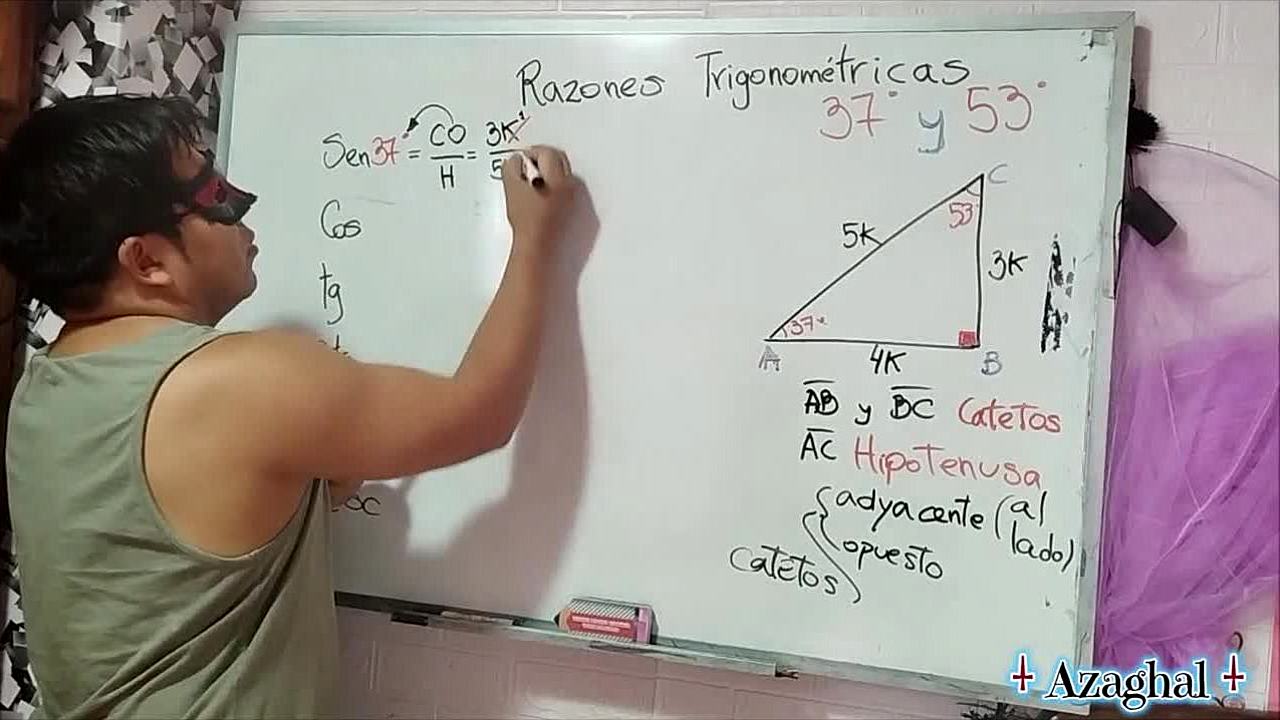 Razones Trigonométricas
37° y 53°
Sen37° = CO/H = 3K¹/5
Cos
tg
C
53°
5K
3K
37°
A
4K
B
AB y BC Catetos
AC Hipotenusa
Catetos { adyacente (al lado)
opuesto
Azaghal